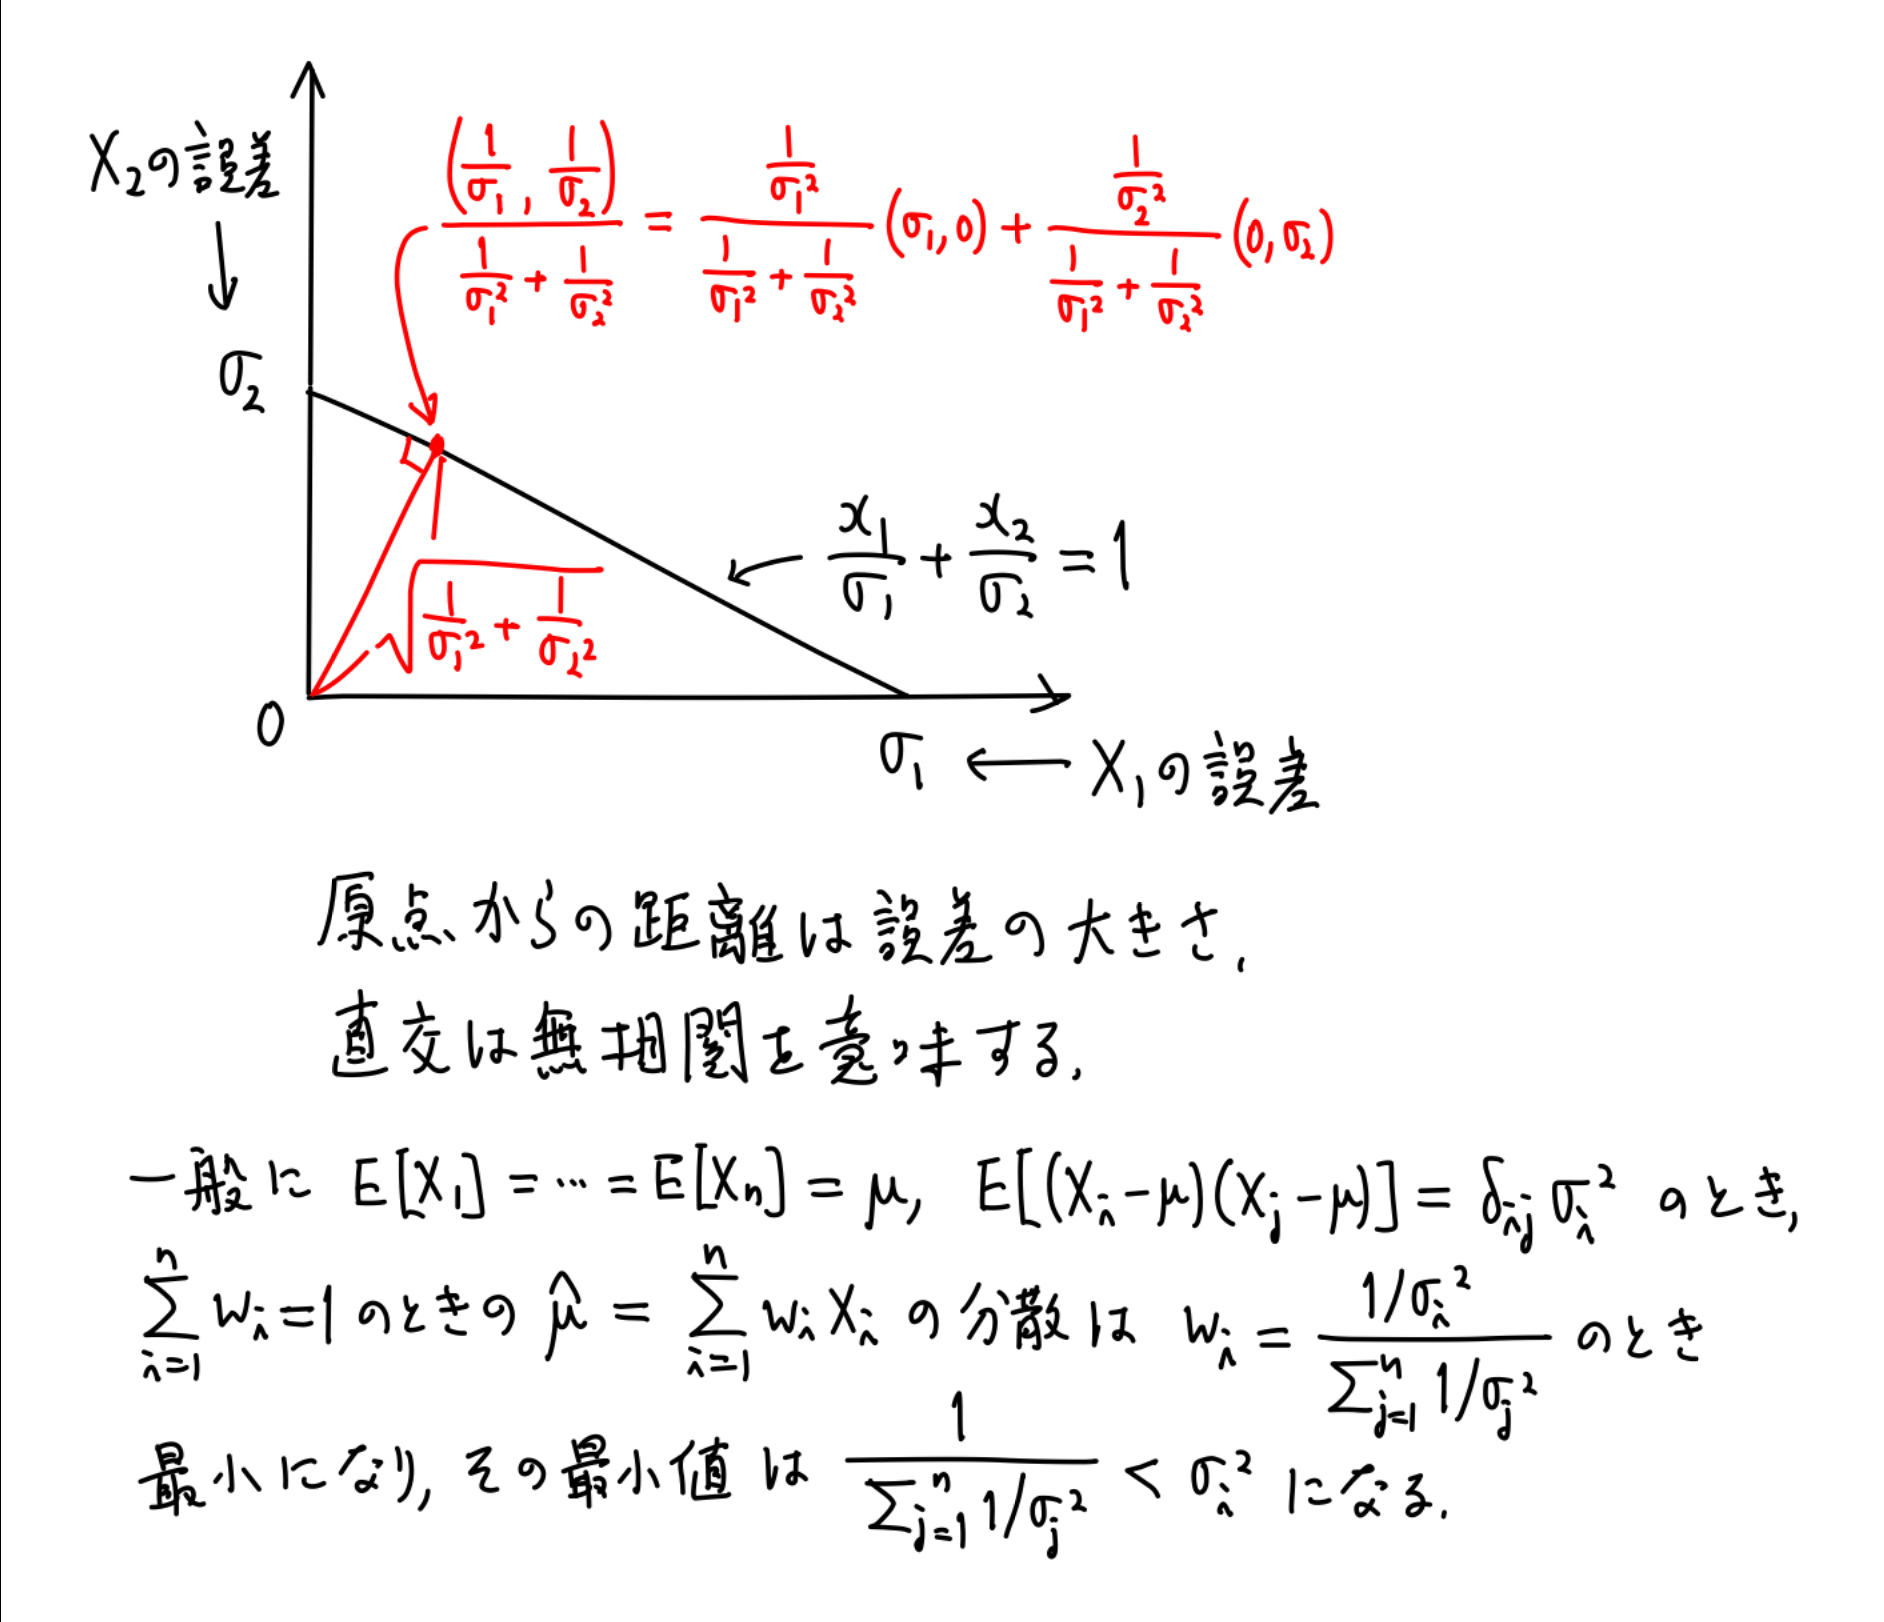 X₂の誤差
(1/σ₁, 1/σ₂) / (1/σ₁² + 1/σ₂²) = (1/σ₁²) / (1/σ₁² + 1/σ₂²) (σ₁, 0) + (1/σ₂²) / (1/σ₁² + 1/σ₂²) (0, σ₂)
σ₂
x₁/σ₁ + x₂/σ₂ = 1
√(1/σ₁² + 1/σ₂²)
0
σ₁ ← X₁の誤差
原点からの距離は誤差の大きさ.
直交は無相関を意味する.
一般に E[X₁] = … = E[Xₙ] = μ, E[(Xᵢ-μ)(Xⱼ-μ)] = δᵢⱼσᵢ² のとき,
∑ᵢ₌₁ⁿ wᵢ=1 のときの μ̂ = ∑ᵢ₌₁ⁿ wᵢXᵢ の分散は wᵢ = (1/σᵢ²) / (∑ⱼ₌₁ⁿ 1/σⱼ²) のとき
最小になり, その最小値は 1 / (∑ⱼ₌₁ⁿ 1/σⱼ²) < σᵢ² になる.